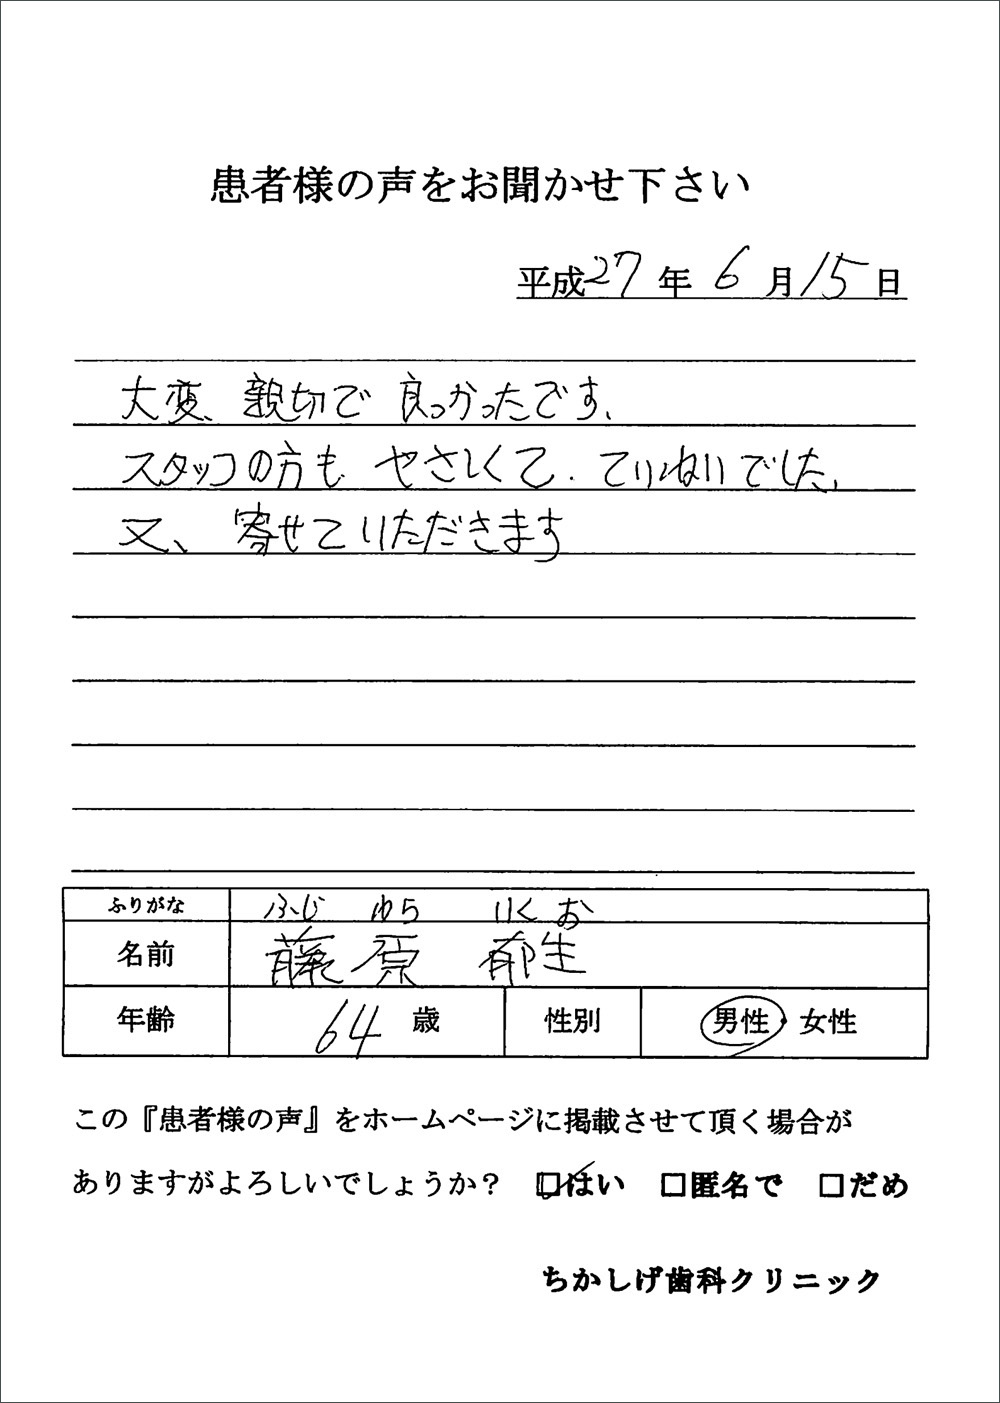 患者様の声をお聞かせ下さい
平成27年 6月15日
大変、親切で 良かったです、
スタッフの方も やさしくて、ていねいでした、
又、寄せていただきます
ふりがな ふじ わら いくお
名前 藤原 郁生
年齢 64 歳 性別 男性・女性
この『患者様の声』をホームページに掲載させて頂く場合が
ありますがよろしいでしょうか? ☑はい □匿名で □だめ
ちかしげ歯科クリニック